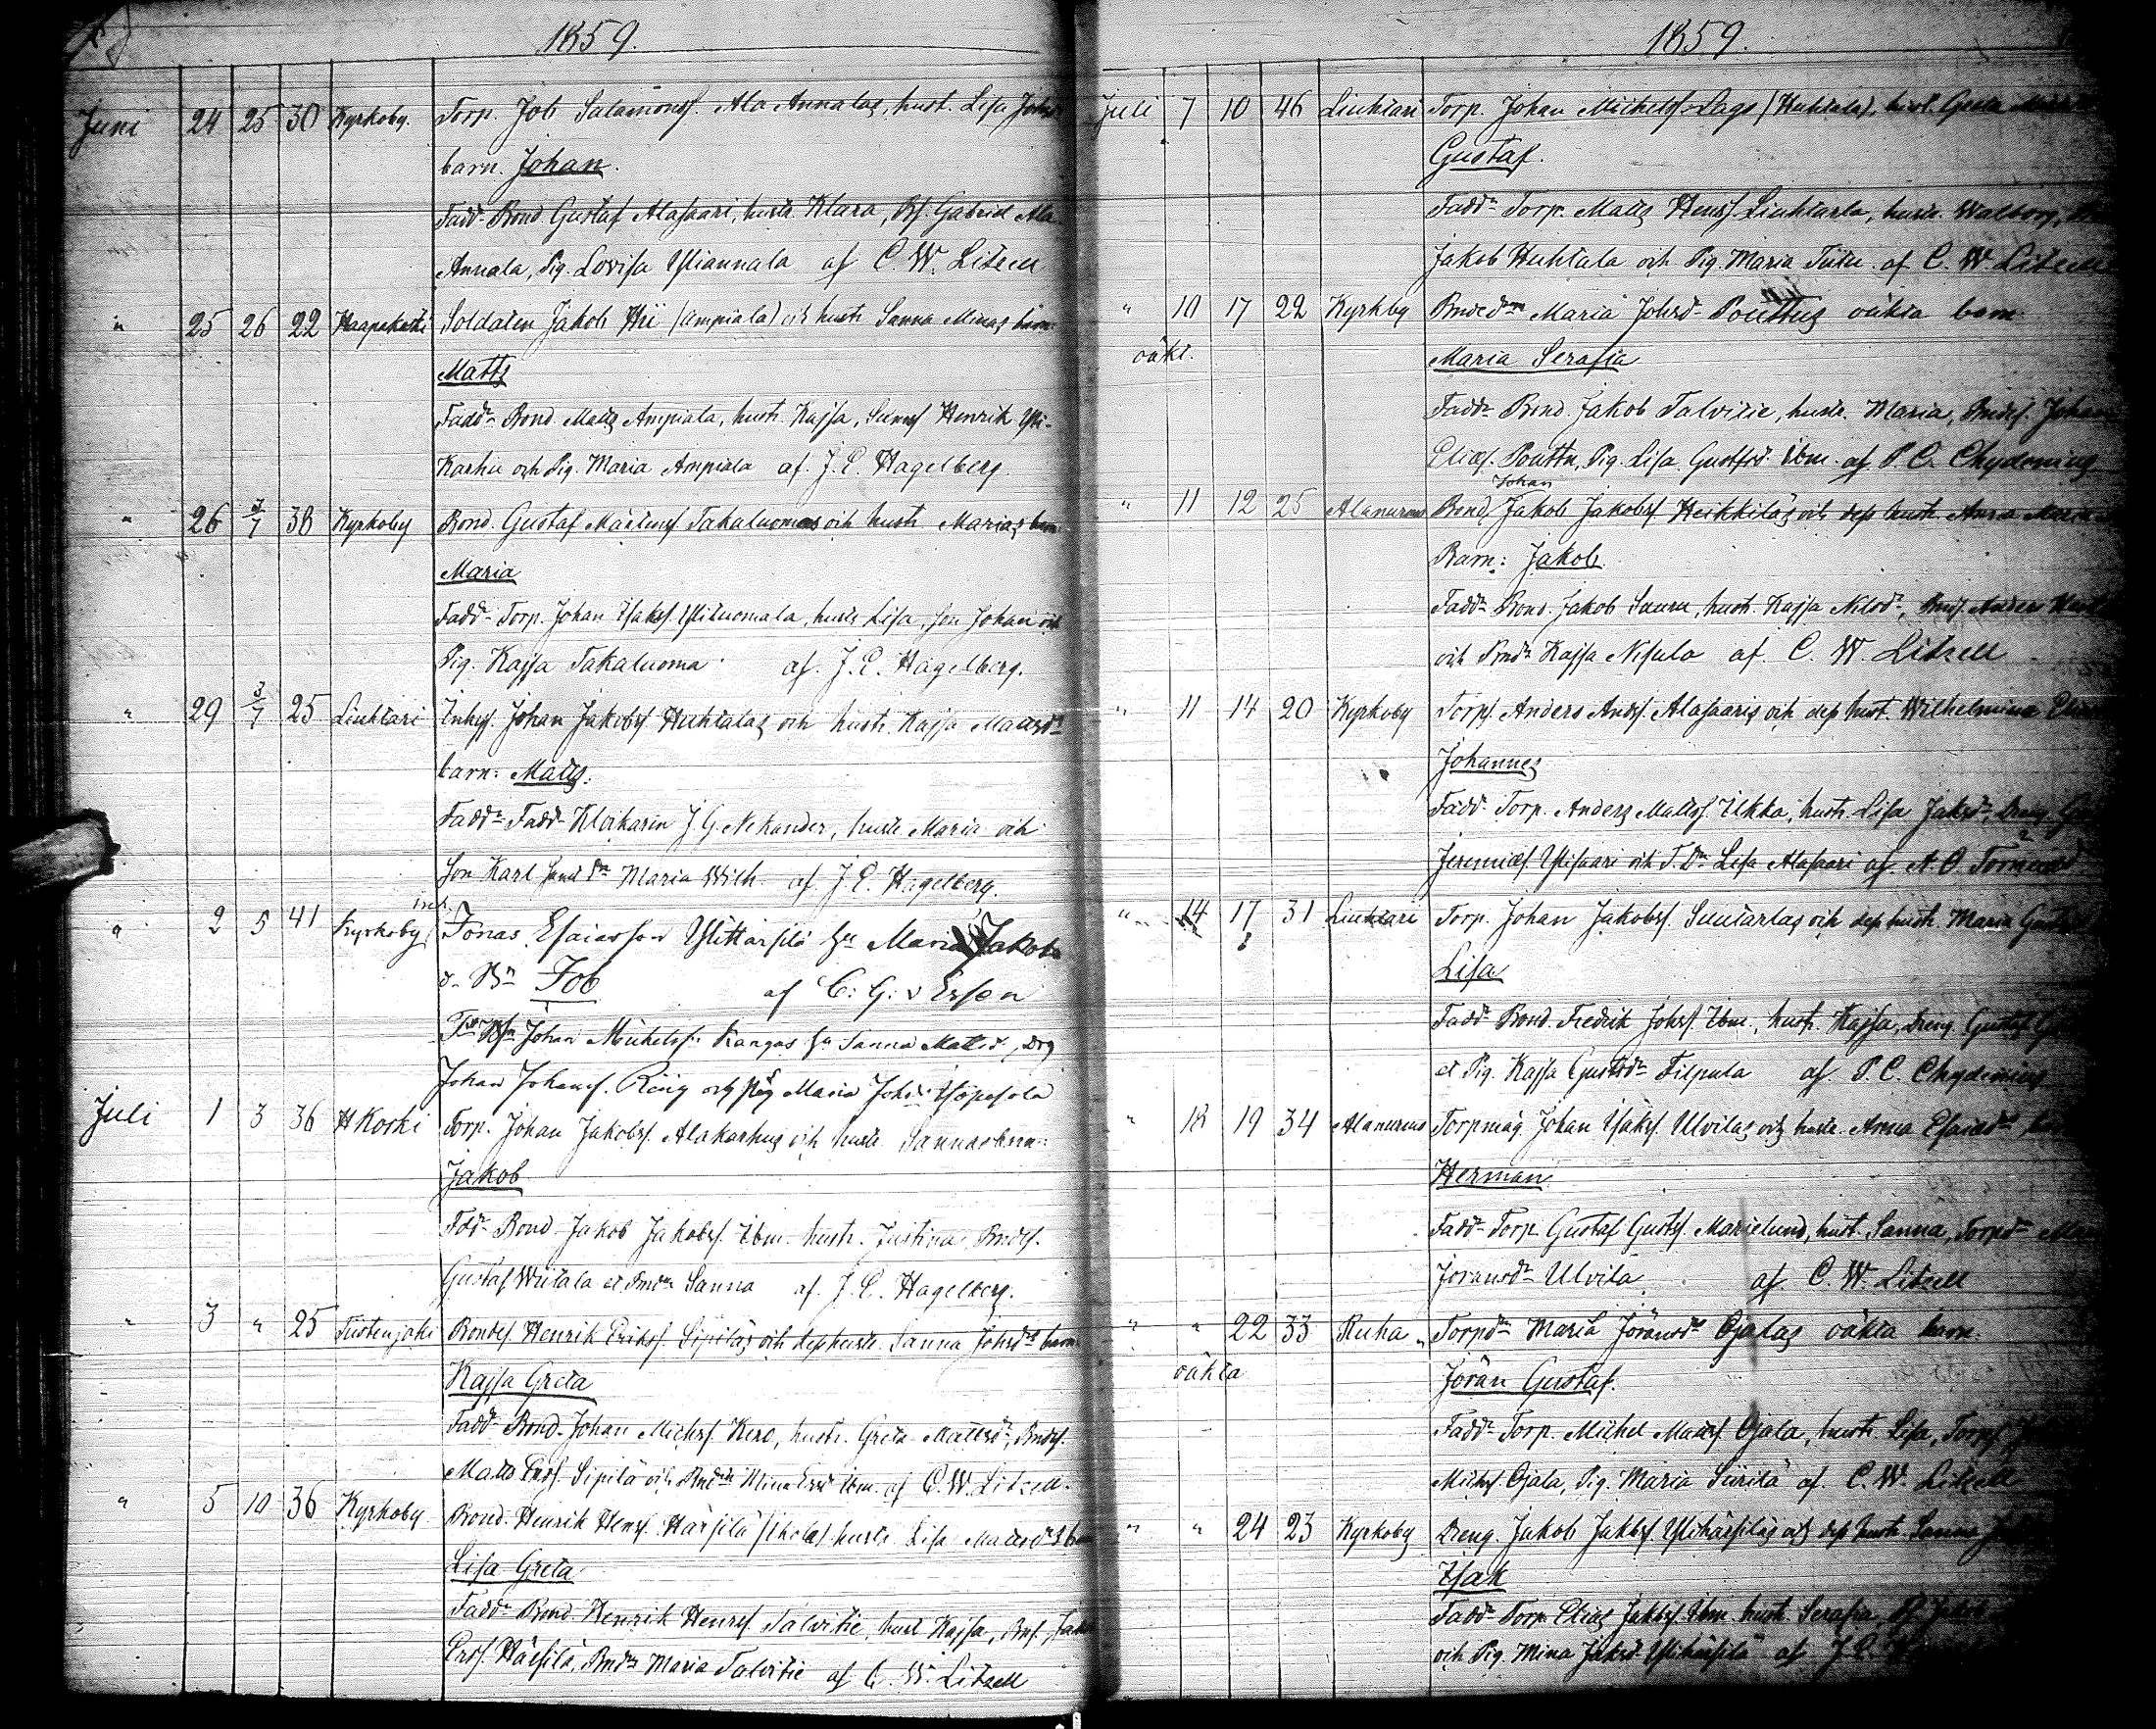 1859.
Juni 24 25 30 Kyrkoby. Torp. Job Salamonsf. Ala Annalas, hust. Lisa Johsd.
barn. Johan.
Fadd. Bond Gustaf Alasaari, hustr. Klara, Bs. Gabriel Ala
Annala, Pig. Lovisa Yliannala af C. W. Litzell
" 25 26 22 Haapakoski Soldaten Jakob Hii (Ampiala) och hustr Sanna Minas barn
Matts
Faddr Bond Matts Ampiala, hustr. Kajsa, Henrik Yli-
Karhu och Pig. Maria Ampiala af. J. E. Hagelberg.
" 26 3/7 38 Kyrkoby Bond. Gustaf Mårtensf Takaluomas och hustr Marias barn
Maria
Fadd. Torp. Johan Isaksf. Yliluomala, hustr Lisa, son Johan och
Pig. Kajsa Takaluoma af. J. E. Hagelberg.
" 29 3/7 25 Liuhtari Inhys. Johan Jakobsf Huhtalas och hustr. Kajsa Mattsdr
barn: Matts.
Faddr Fadd. Klockaren J. G. Nekander, hustr Maria och
Son Karl samt Dr Maria Wilh. af. J. E. Hagelberg.
" 2 5 41 Kyrkoby Jonas Esaiasson Ylittarsilä Hu Maria Jakobs
d. Bn Job af C: G: v Essen
Johan Michelsf. Kangas Hu Sanna Mattsd., Drg
Johan Johansf. Ring och pig Maria Johd.
Juli 1 3 36 H Koski Torp. Johan Jakobsf. Alakarhus och hustr. Sannas barn:
Jakob
Fdd. Bond. Jakob Jakobsf. Ibm. hustr. Justina, Bndsf.
Gustaf Wiitala et Bnddr Sanna af. J. E. Hagelberg.
" 3 " 25 Tiistenjoki Bondesf. Henrik Eriksf. Sipiläs och dess hustr. Sanna Johsdrs barn
Kajsa Greta
Fadd. Bond. Johan Michsf. Kero, hustr. Greta Mattsdr, Bndsf.
Matts Ersf. Sipilä och Bnddr Mina Ersd Ibm. af C. W. Litzell.
" 5 10 36 Kyrkoby Bond. Henrik Hensf. Härsilä hustr. Lisa Mattsdrs barn
Lisa Greta
Faddr Bond Henrik Henrsf. Talvitie, hust Kajsa, Bnf. Jak
Ersf. Härsilä, Bnddr Maria Talvitie af C. W. Litzell
1859.
Juli 7 10 46 Liuhtari Torp. Johan Michelsf. Lagg (Huhtala), hust. Greta
Gustaf.
Faddr Torp. Matts Hensf. Liuhtarla, hustr. Walborg,
Jakob Huhtala och Pig. Maria af C. W. Litzell
" 10 17 22 Kyrkby Bndedr Maria Johsd. Pouttus oäkta barn
oäkt. Maria Serafia
Faddr Bond. Jakob Talvitie, hustr. Maria, Bndsf. Johan
Eliasf. Pouttu, Pig. Lisa Gustfsd. Ibm. af P. C. Chydenius
Johan
" 11 12 25 Alanurmo Bond Jakob Jakobsf. Heikkiläs och dess hustr. Anna Maria
Barn: Jakob.
Faddr Bond. Jakob Sauru, hustr. Kajsa Nilsdr, Bndsf. Anders
och Bndr Kajsa Nisula af. C. W. Litzell
" 11 14 20 Kyrkoby Torps. Anders Andsf. Alasaaris och dess hust. Wilhelmina
Johannes
Fadd. Torp. Anders Mattsf. Ilkka, hustr. Lisa Jaksdr, Dreng.
Jeremiasf. Ylisaari och T. Dr Lisa Alasaari af. A. O. Törnudd
" 14 17 31 Liuhtari Torp. Johan Jakobsf. Suutarlas och dess hustr. Maria
Lisa
Faddr Bond. Fredrik Johsf. Ibm., hustr. Kajsa, Dreng. Gustaf
et Pig. Kajsa Gustdr Filpula af. P. C. Chydenius
" 18 19 34 Alanurmo Torpmåg Johan Isaksf. Ulvilas och hustr. Anna Esaiadr
Herman
Fadd. Torp. Gustaf Gustsf. Marielund, hust. Sanna, Torpdr
Jöransdr Ulvila af C. W. Litzell
" " 22 33 Ruha Torpdr Maria Jöransdr Ojalas oäkta barn:
oäkta Jöran Gustaf.
Faddr Torp. Michel Mattsf Ojala, hustr. Lisa, Torpsf
Michsf. Ojala, Pig. Maria Siirilä af. C. W. Litzell
" " 24 23 Kyrkoby Dreng. Jakob Jakbsf. Ylihärsiläs och dess hustr. Sanna
Isak
Fadd. Torp. Elias Jakbsf. Ibm. hustr. Serafia,
och Pig. Mina Jaksd. Ylihärsilä af J. E.